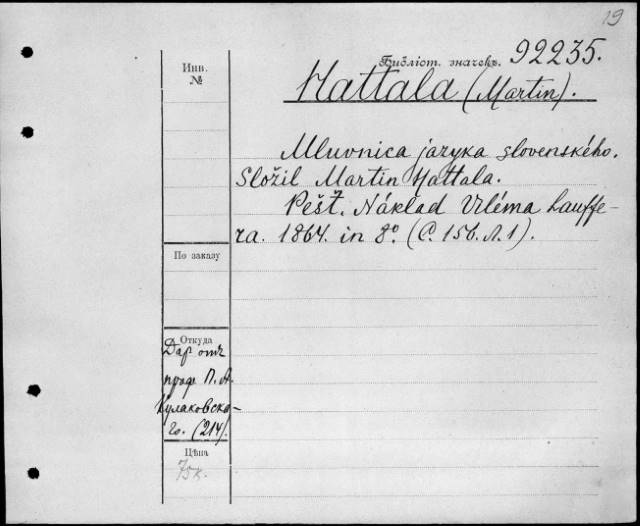 19
Библіот. значекъ. 92235.
Hattala (Martin).
Инв.
№
Mluvnica jazyka slovenského.
Složil Martin Hattala.
Pešť. Náklad Viléma Lauffe-
ra. 1864. in 8º (С. 156. Л. 1).
По заказу
Откуда
Дар отъ
проф. П. А.
Кулаковска-
го. (214).
Цѣна
75к.